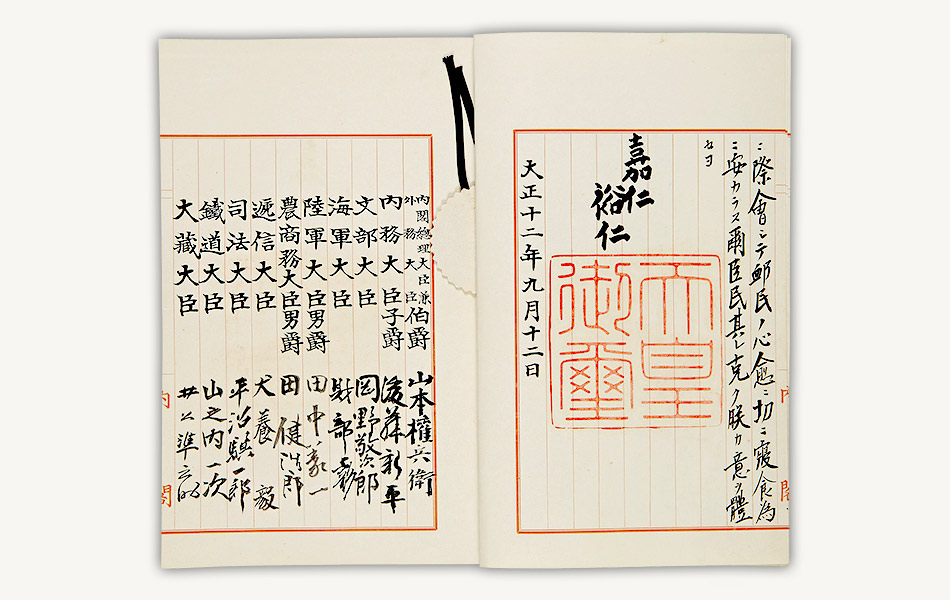 ニ際會シテ卹民ノ心愈ニ切ニ寢食為
ニ安カラス爾臣民其レ克ク朕カ意ヲ體
セヨ
嘉仁
裕仁
天皇御璽
大正十二年九月十二日
內閣總理大臣兼
外務大臣伯爵 山本權兵衛
內務大臣子爵 後藤新平
文部大臣 岡野敬次郎
海軍大臣 財部彪
陸軍大臣男爵 田中義一
農商務大臣男爵 田健治郎
遞信大臣 犬養毅
司法大臣 平沼騏一郎
鐵道大臣 山之內一次
大藏大臣 井上準之助
內閣
內閣